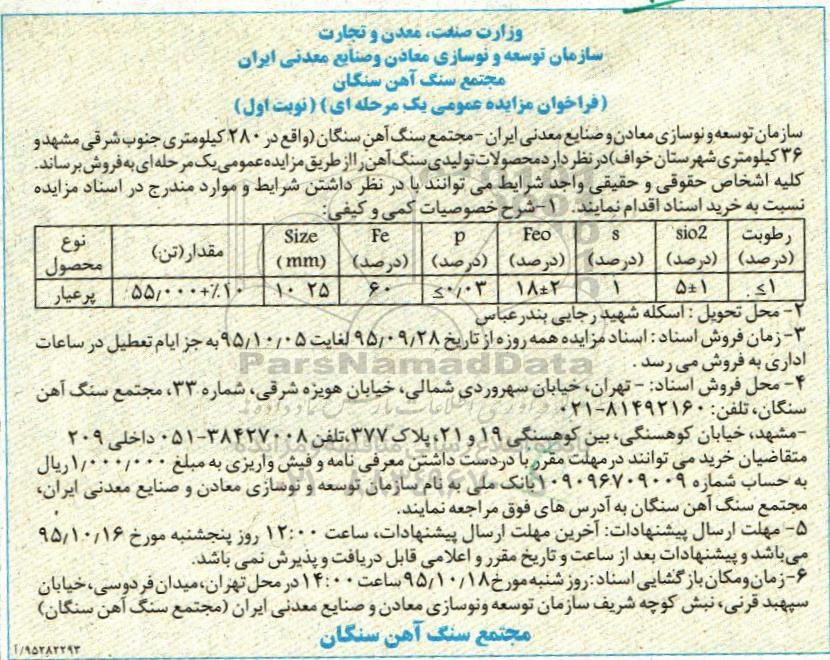 وزارت صنعت، معدن و تجارت
سازمان توسعه و نوسازی معادن وصنایع معدنی ایران
مجتمع سنگ آهن سنگان
(فراخوان مزایده عمومی یک مرحله ای) (نوبت اول)
سازمان توسعه و نوسازی معادن و صنایع معدنی ایران - مجتمع سنگ آهن سنگان (واقع در ۲۸۰ کیلومتری جنوب شرقی مشهد و
۳۶ کیلومتری شهرستان خواف) در نظر دارد محصولات تولیدی سنگ آهن را از طریق مزایده عمومی یک مرحله ای به فروش برساند.
کلیه اشخاص حقوقی و حقیقی واجد شرایط می توانند با در نظر داشتن شرایط و موارد مندرج در اسناد مزایده
نسبت به خرید اسناد اقدام نمایند. ۱- شرح خصوصیات کمی و کیفی:
نوع محصول | مقدار(تن) | Size (mm) | Fe (درصد) | p (درصد) | Feo (درصد) | s (درصد) | sio2 (درصد) | رطوبت (درصد)
پرعیار | ۵۵٫۰۰۰+٪۱۰ | ۱۰ ۲۵ | ۶۰ | ≤۰٫۰۳ | ۱۸±۲ | ۱ | ۵±۱ | ≤۱
۲- محل تحویل : اسکله شهید رجایی بندرعباس
۳- زمان فروش اسناد : اسناد مزایده همه روزه از تاریخ ۹۵٫۰۹٫۲۸ لغایت ۹۵٫۱۰٫۰۵ به جز ایام تعطیل در ساعات
اداری به فروش می رسد .
۴- محل فروش اسناد: - تهران، خیابان سهروردی شمالی، خیابان هویزه شرقی، شماره ۳۳، مجتمع سنگ آهن
سنگان، تلفن: ۸۱۴۹۲۱۶۰-۰۲۱
-مشهد، خیابان کوهسنگی، بین کوهسنگی ۱۹ و ۲۱، پلاک ۳۷۷، تلفن ۳۸۴۲۷۰۰۸-۰۵۱ داخلی ۲۰۹
متقاضیان خرید می توانند در مهلت مقرر با در دست داشتن معرفی نامه و فیش واریزی به مبلغ ۱٫۰۰۰٫۰۰۰ ریال
به حساب شماره ۱۰۹۰۹۶۷۰۹۰۰۹ بانک ملی به نام سازمان توسعه و نوسازی معادن و صنایع معدنی ایران،
مجتمع سنگ آهن سنگان به آدرس های فوق مراجعه نمایند.
۵- مهلت ارسال پیشنهادات: آخرین مهلت ارسال پیشنهادات، ساعت ۱۲:۰۰ روز پنجشنبه مورخ ۹۵٫۱۰٫۱۶
می باشد و پیشنهادات بعد از ساعت و تاریخ مقرر و اعلامی قابل دریافت و پذیرش نمی باشد.
۶- زمان و مکان بازگشایی اسناد : روز شنبه مورخ ۹۵٫۱۰٫۱۸ ساعت ۱۴:۰۰ در محل تهران، میدان فردوسی، خیابان
سپهبد قرنی، نبش کوچه شریف سازمان توسعه ونوسازی معادن و صنایع معدنی ایران (مجتمع سنگ آهن سنگان)
مجتمع سنگ آهن سنگان
۹۵۲۸۲۲۹۳/آ
ParsNamadData